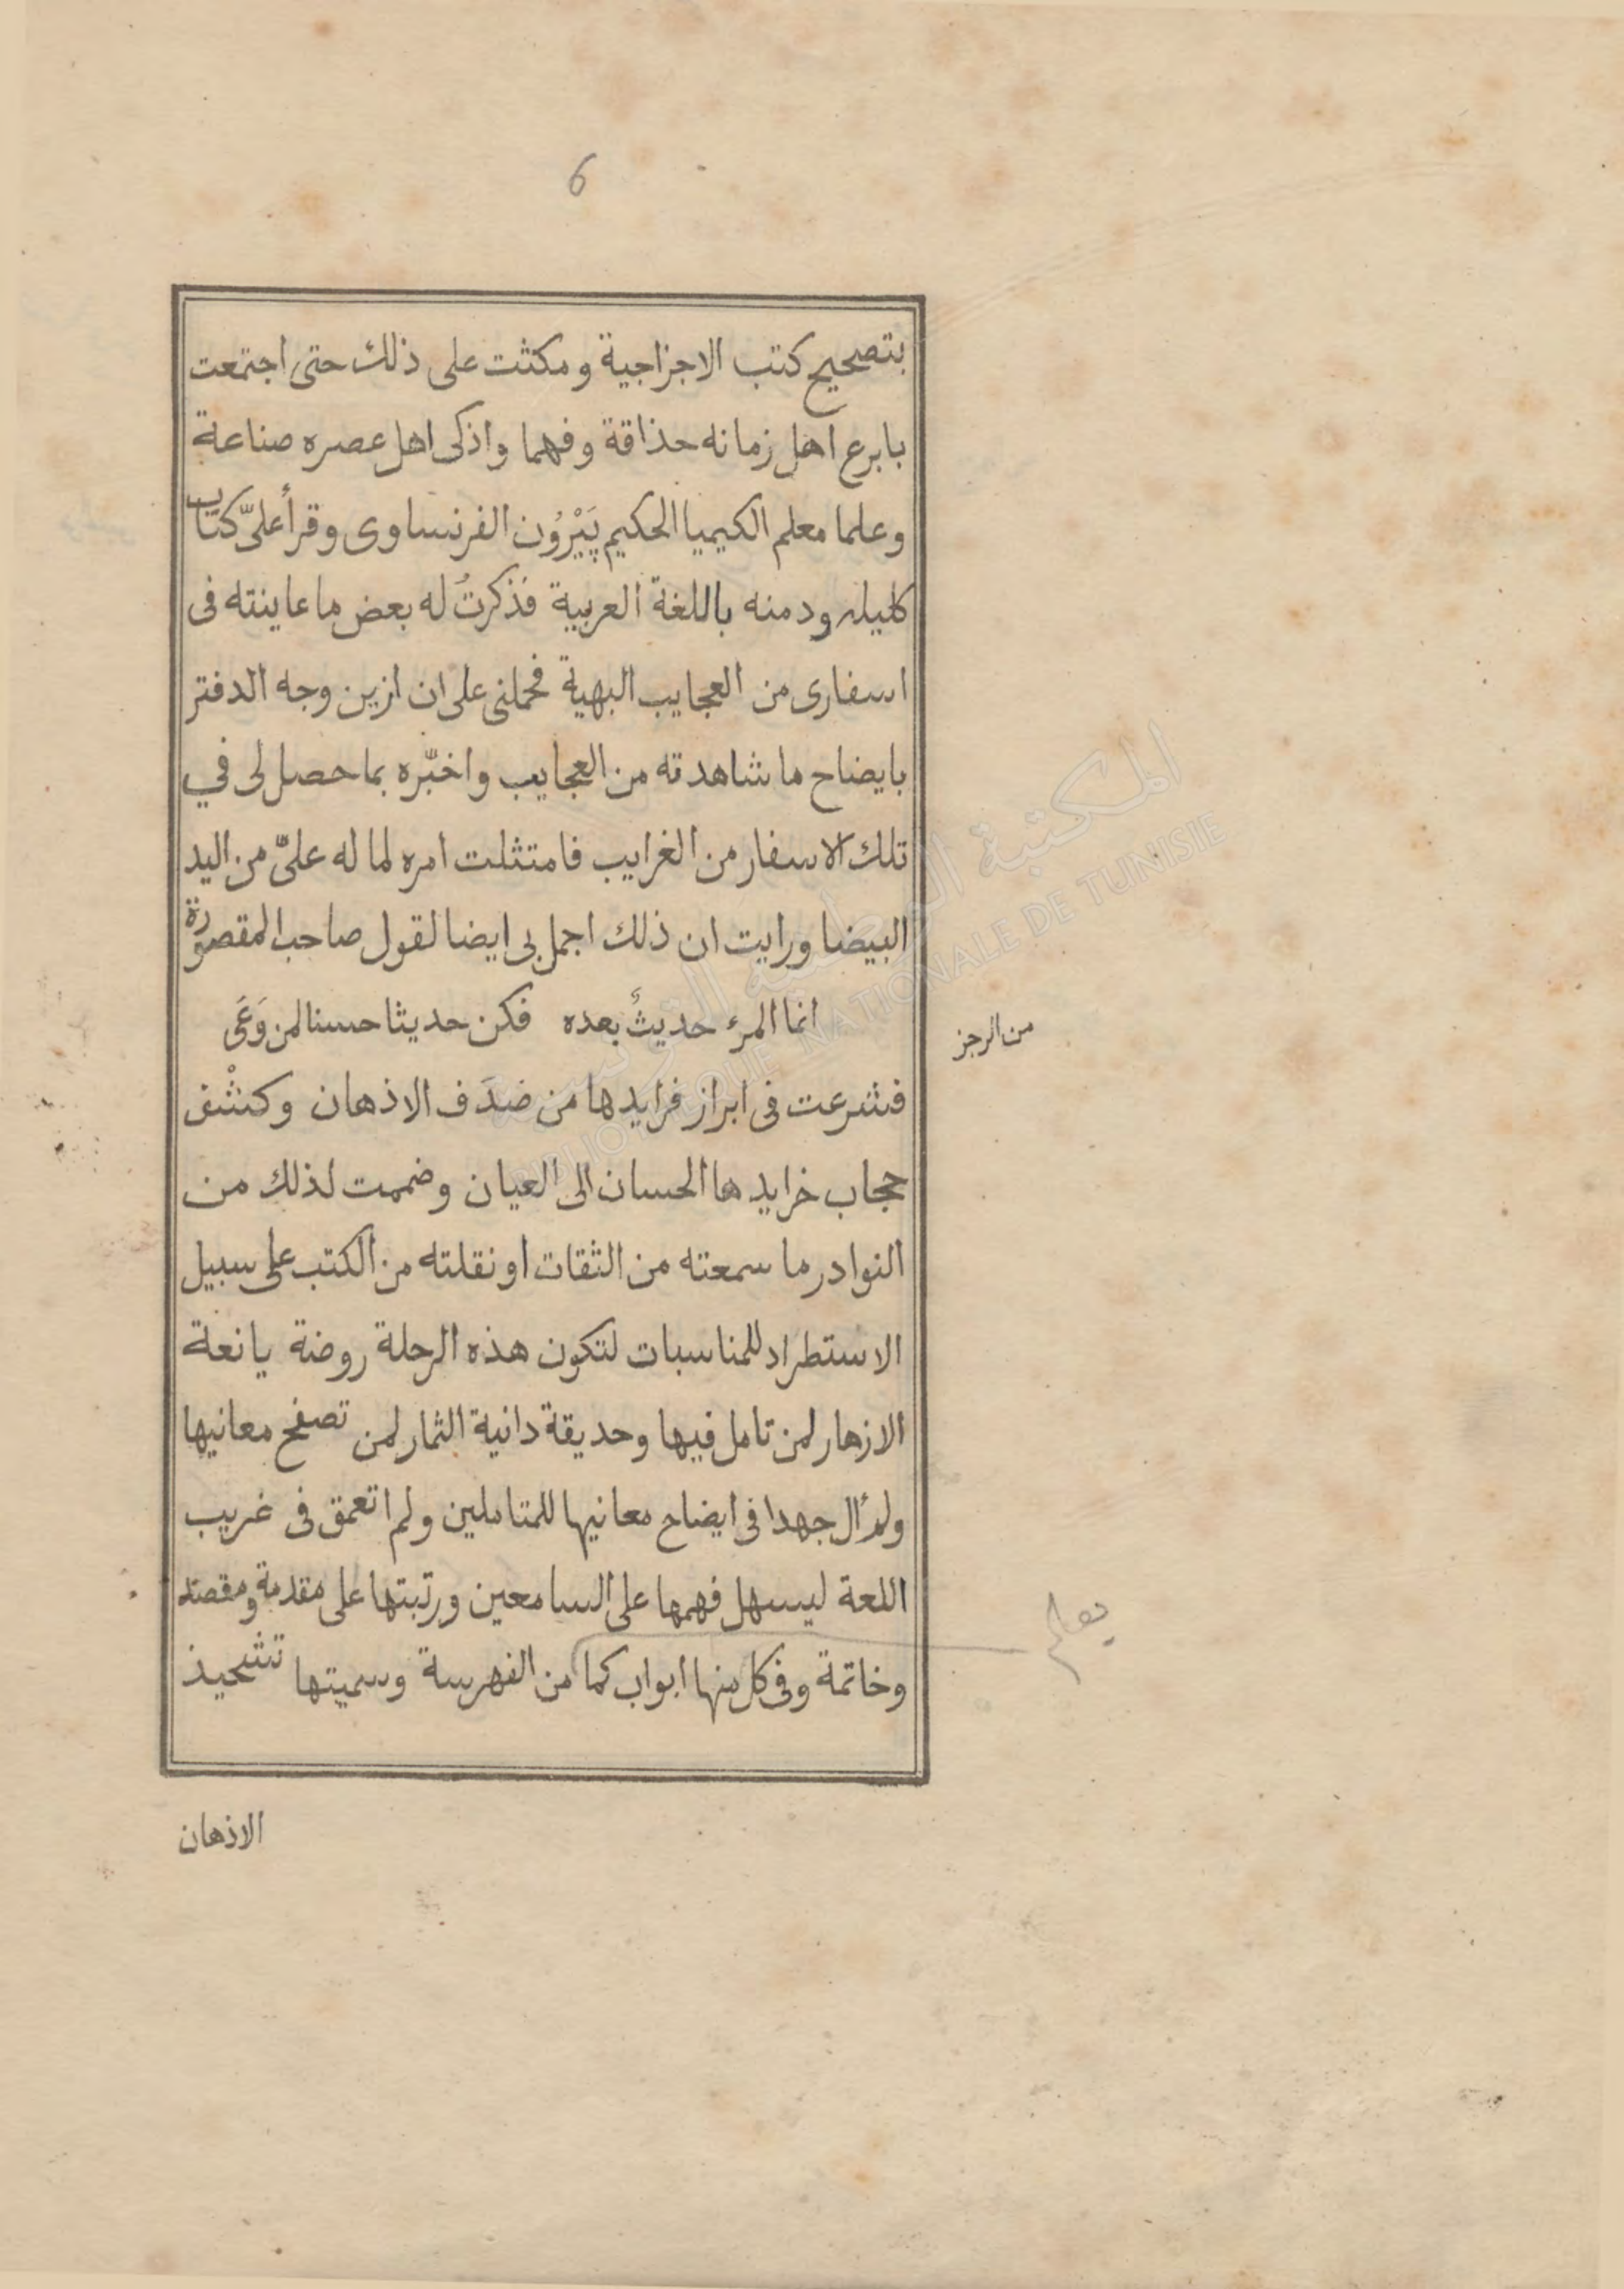 6
بتصحيح كتب الاجزاجية ومكثت على ذلك حتى اجتمعت
بابرع اهل زمانه حذاقة وفهما واذكى اهل عصره صناعة
وعلما معلم الكيميا الحكيم پَيْرُون الفرنساوى وقرأ علىّ كتاب
كليله ودمنه باللغة العربية فذكرتُ له بعض ما عاينته فى
اسفارى من العجايب البهية فحملنى على ان ازين وجه الدفتر
بايضاح ما شاهدته من العجايب واخبّره بما حصل لى في
تلك الاسفار من الغرايب فامتثلت امره لما له علىّ من اليد
البيضا ورايت ان ذلك اجمل بى ايضا لقول صاحب المقصورة
انما المرء حديثٌ بعده فكن حديثا حسنا لمن وَعَى
من الرجز
فشرعت فى ابراز فرايدها من صَدَف الاذهان وكشْف
حجاب خرايدها الحسان الى العيان وضممت لذلك من
النوادر ما سمعته من الثقات او نقلته من الكتب على سبيل
الاستطراد للمناسبات لتكون هذه الرحلة روضة يانعة
الازهار لمن تامل فيها وحديقة دانية الثمار لمن تصفح معانيها
ولم أال جهدا فى ايضاح معانيها للمتاملين ولم اتعمق فى غريب
اللغة ليسهل فهمها على السامعين ورتبتها على مقدمة ومقصد
وخاتمة وفى كل منها ابواب كما من الفهرسة وسميتها تشحيذ
يعلم
الاذهان
المكتبة الوطنية التونسية
BIBLIOTHEQUE NATIONALE DE TUNISIE